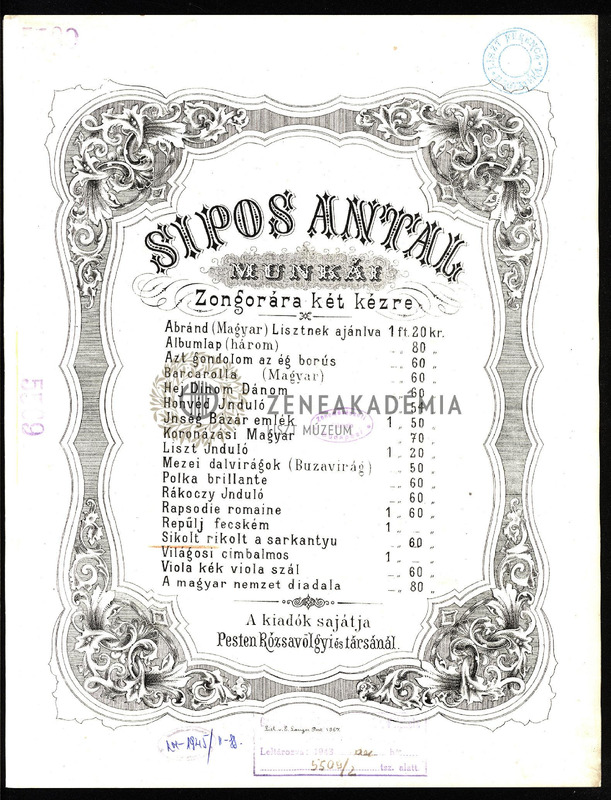 5509
LISZT FERENCZ
SIPOS ANTAL
MUNKÁI
Zongorára két kézre.
Abránd (Magyar) Lisztnek ajánlva 1 ft. 20 kr.
Albumlap (három) — „ 80 „
Azt gondolom az ég borús — „ 60 „
Barcarolla (Magyar) — „ 60 „
Hej Dinom Dánom — „ 60 „
Honvéd Jnduló — „ 50 „
Jnség Bazár emlék 1 „ 50 „
Koronázási Magyar — „ 70 „
Liszt Jnduló 1 „ 20 „
Mezei dalvirágok (Buzavirág) — „ 50 „
Polka brillante — „ 60 „
Rákoczy Jnduló — „ 60 „
Rapsodie romaine 1 „ 60 „
Repülj fecském 1 „ — „
Sikolt rikolt a sarkantyu — „ 60 „
Világosi cimbalmos 1 „ — „
Viola kék viola szál — „ 60 „
A magyar nemzet diadala — „ 80 „
ZENEAKADEMIA
LISZT MÚZEUM
5509
A kiadók sajátja
Pesten Rózsavölgyi és társánál.
Lit. v. E. Langer Pest 1867.
LM-1945/
Leltározva: 19
5509/2 tsz. alatt